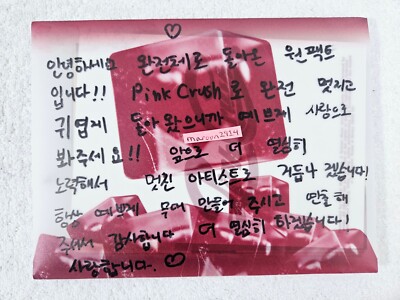 ♡
안녕하세요 완전체로 돌아온 원팩트
입니다!! Pink Crush로 완전 멋지고
귀엽게 돌아왔으니까 예쁘게 사랑으로
maroon2914
봐주세요!! 앞으로 더 열심히
노력해서 멋진 아티스트로 거듭나겠습니다!
항상 예쁘게 무대 만들어 주시고
주셔서 감사합니다 더 열심히 하겠습니다!
사랑합니다. ♡